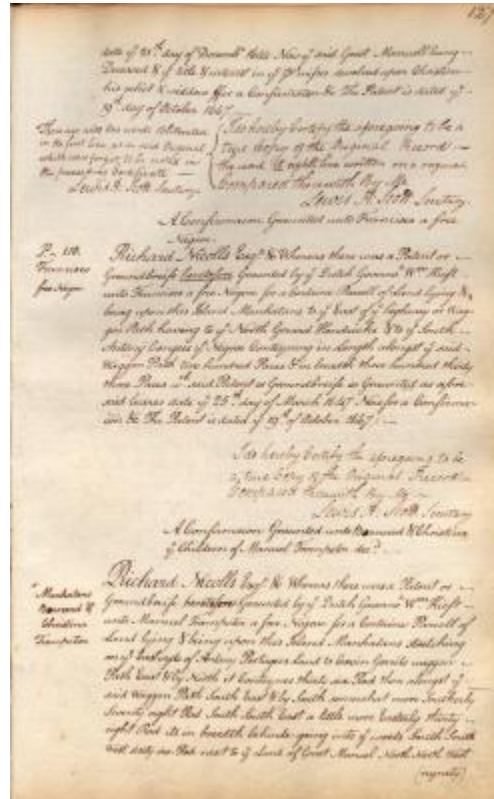 127
date ye 28th day of Decembr 1644 Now ye said Great Manuell being
Deceased & ye title & interest in ye premises devolved upon Christina
his relict & widdow for a Confirmation &c The Patent is dated ye
19th day of October 1667
in the first line of the said Original
which were forgot to be noted in
the preceeding Certificate —
Lewis A. Scott Secretary
I do hereby Certify the aforegoing to be a
true Copy of the Original Record —
written on a
Compared therewith By Me
Lewis A. Scott Secretary.
A Confirmation Graunted unto Francisco a free
Negro.
P. 110.
Francisco
free Negro
Richard Nicolls Esqr &c Whereas there was a Patent or —
Groundbreife heretofore Graunted by ye Dutch Governr Wm Kieft
unto Francisco a free Negro for a Certaine Parcell of Land lying &
being upon this Island Manhatans to ye East of ye highway or Wag-
gon Path having to ye North Gerard Hendricks & to ye South
Antony Congoe ye Negroe Conteyning in Length alongst ye said
Waggon Path two hundred Paces & in breadth three hundred thirty
three Paces ye said Patent or Groundbreife so Graunted as afore
said beares date ye 25th day of March 1647 Now for a Confirma-
con &c The Patent is dated ye 19th of October 1667 . —
I do hereby Certify the aforegoing to be
a true Copy of the Original Record —
Compared therewith By Me —
Lewis A. Scott Secretary
A Confirmation Graunted unto Bernard & Christina
ye Children of Manuel Trumpeter decd.
Manhatans
Bernard &
Christina
Trumpeter
Richard Nicolls Esqr &c Whereas there was a Patent or —
Groundbreife heretofore Graunted by ye Dutch Governr Wm Kieft
unto Manuel Trumpeter a free Negro for a Certaine Parcell of
Land lying & being upon this Island Manhatans stretching
on ye East syde of Antony Portugees Land to Gerrits waggon
Path East & by North it Conteynes thirty six Rod then alongst ye
said Waggon Path South East & by South somewhat more Southerly
seventy eight Rod South South East a little more Easterly thirty
eight Rod its in breadth behinde going into ye woods South South
West sixty six Rod next to ye Land of Great Manuel North North West
(nynety)